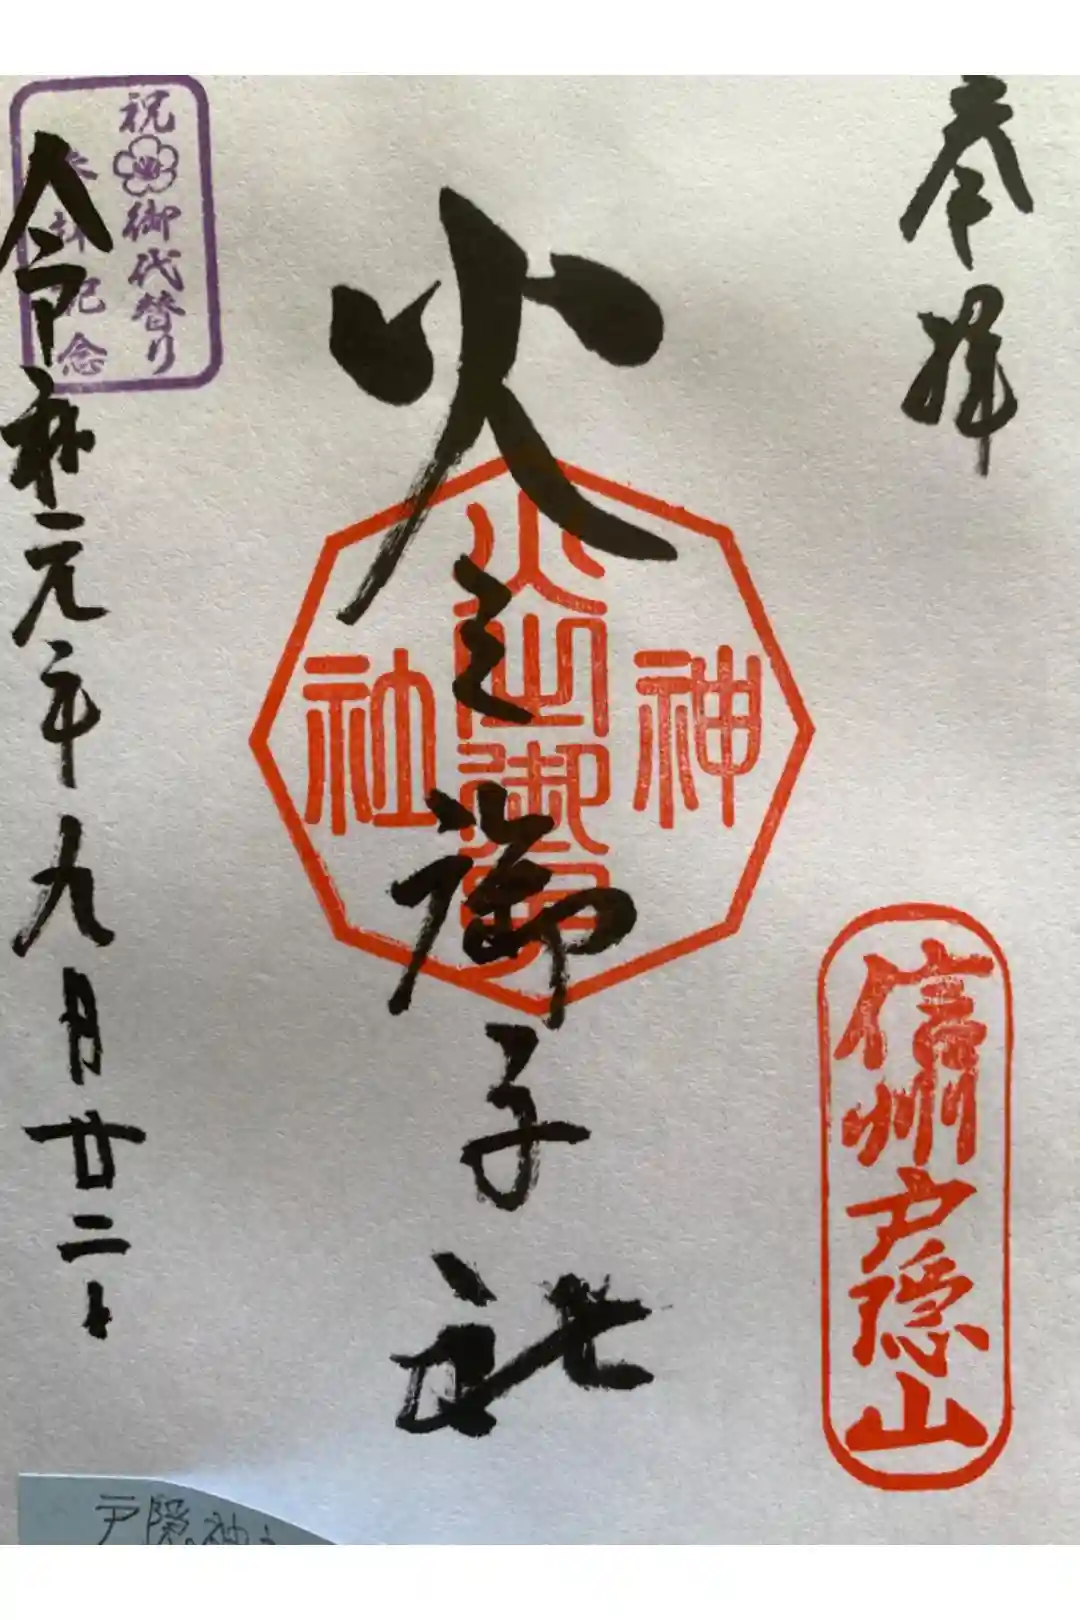 奉拝
信州戸隠山
火之御子社
神
火之御子
社
祝 御代替り
参拝記念
令和元年九月廿二日
戸隠神社